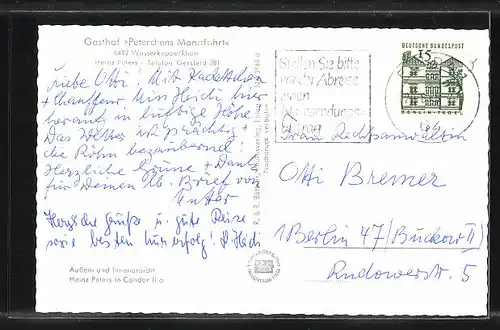 Gasthof »Peterchens Mondfahrt«
6412 Wasserkuppe/Rhön
Heinz Peters - Telefon Gersfeld 381
Liebe Otti! Mit Kadettchen
+ Chauffeur Heidi hier
herauf in luftige Höhe
Das Wetter ist prächtig +
die Röhn bezaubernd!
Herzliche Grüsse + Dank
für Deinen lb. Brief von
Herzliche Grüße u. gute Reise
sowie besten Kurerfolg! D. Heidi
Außen- und Innenansicht
Heinz Peters in Condor II a
Stellen Sie bitte
vor der Abreise
einen
Nachsendungs-
antrag
DEUTSCHE BUNDESPOST
15
BERLIN-TEGEL
Frau Rechtsanwältin
Otti Bremer
1 Berlin 47 (Buckow II)
Rudowerstr. 5